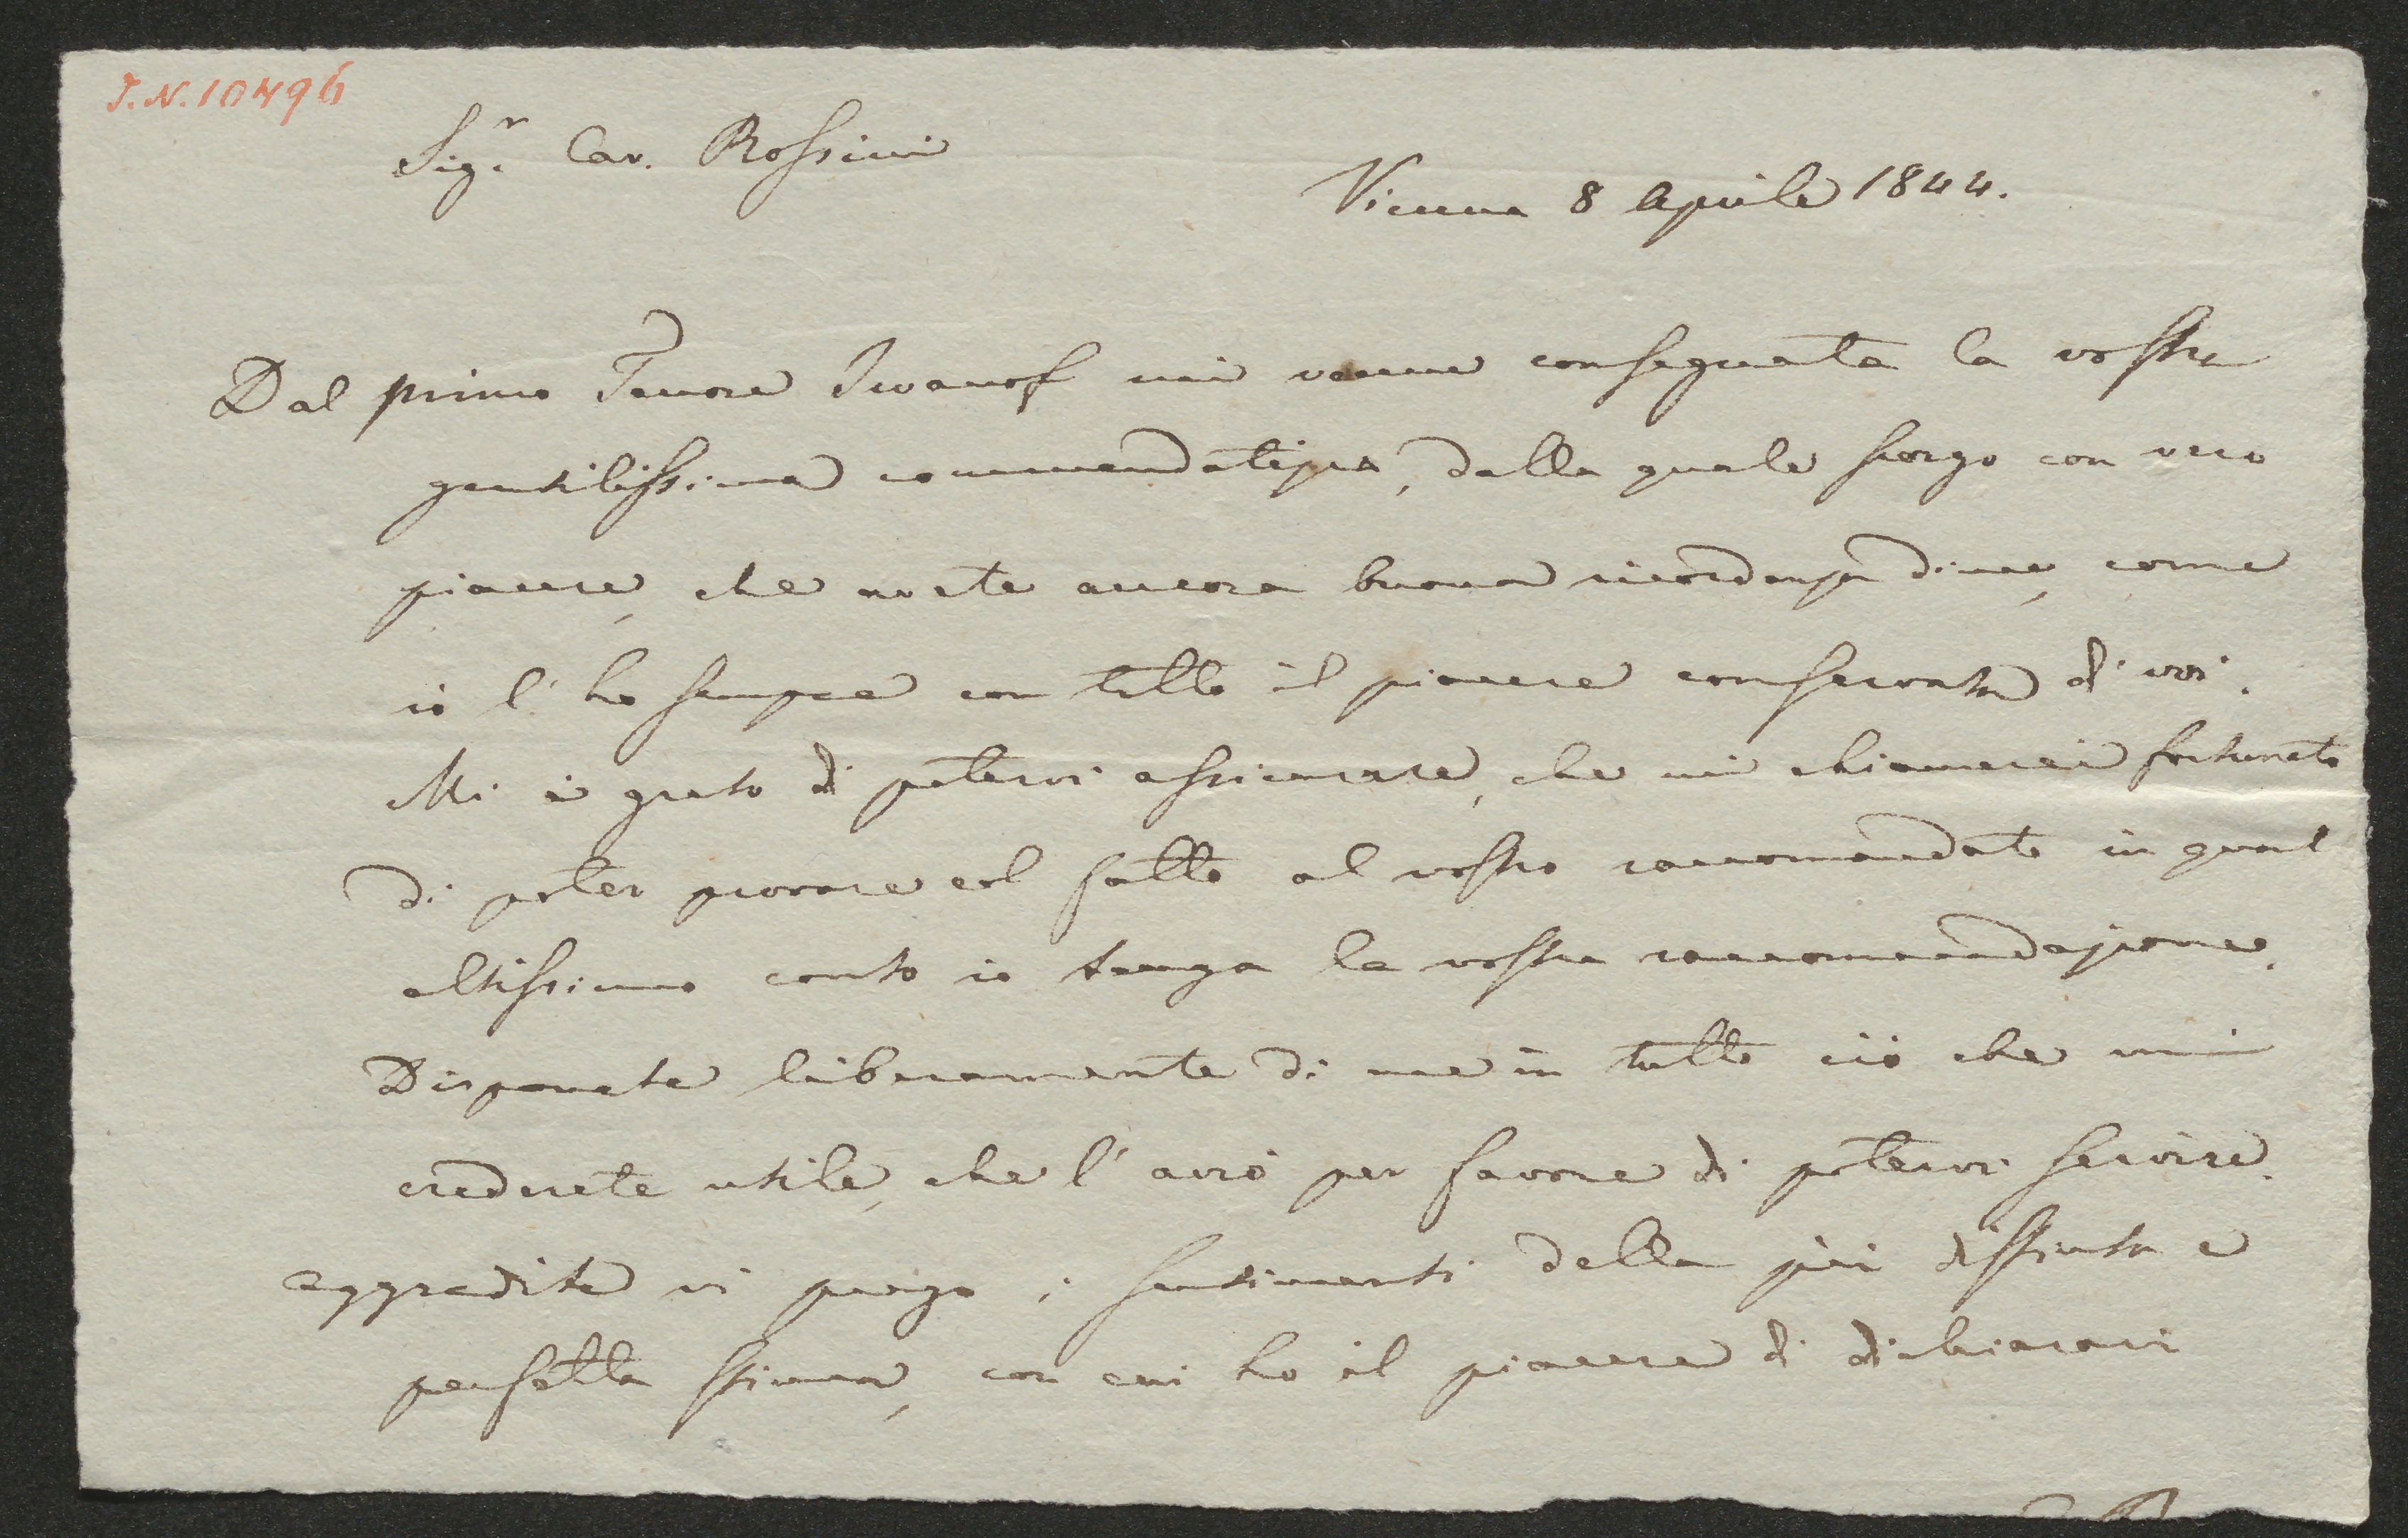 J.N.10496
Sig.r Cav. Rossini
Vienna 8 Aprile 1844.
Dal primo Tenore Iwanof mi venne consegnata la vostra
gentilissima commendatizia, dalla quale scorgo con vero
piacere, che avete ancora buona ricordanza di me, come
io l'ho sempre con tutto il piacere conservata di voi.
Mi è grato di potervi assicurare, che mi chiamerei fortunato
di poter provare col fatto al vostro raccomandato in qual
altissimo conto io tenga la vostra raccomandazione.
Disponete liberamente di me in tutto ciò che mi
crederete utile, che l'avrò per favore di potervi servire.
Aggradite vi prego i sentimenti della più distinta e
perfetta stima, con cui ho il piacere di dichiararvi